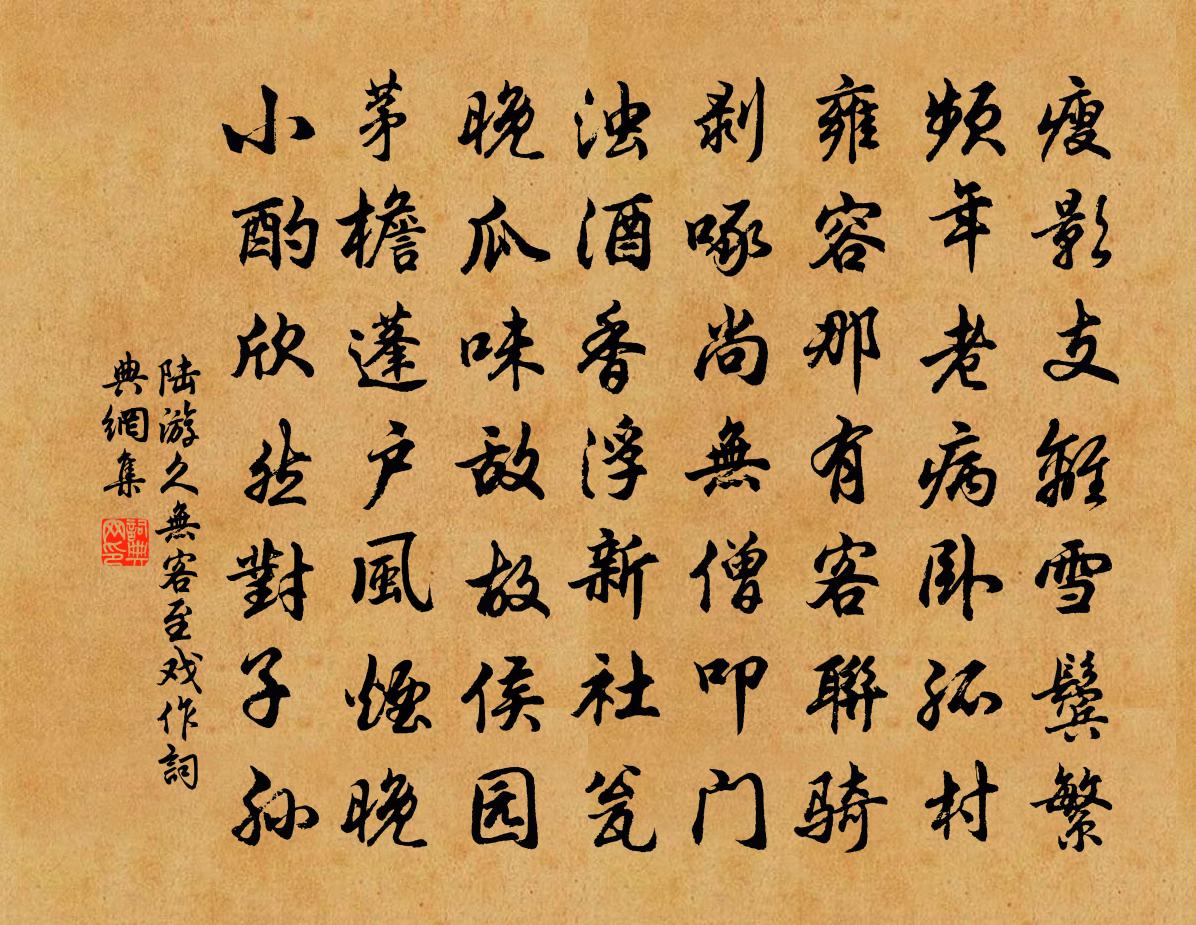 瘦影支離雪鬓繁
頻年老病卧孤村
雍容那有客聯騎
剥啄尚無僧叩门
浊酒香浮新社瓮
晚瓜味敌故侯园
茅檐蓬户風煙晚
小酌欣然對子孙
陆游久無客至戏作詞
典網集
詞典网印